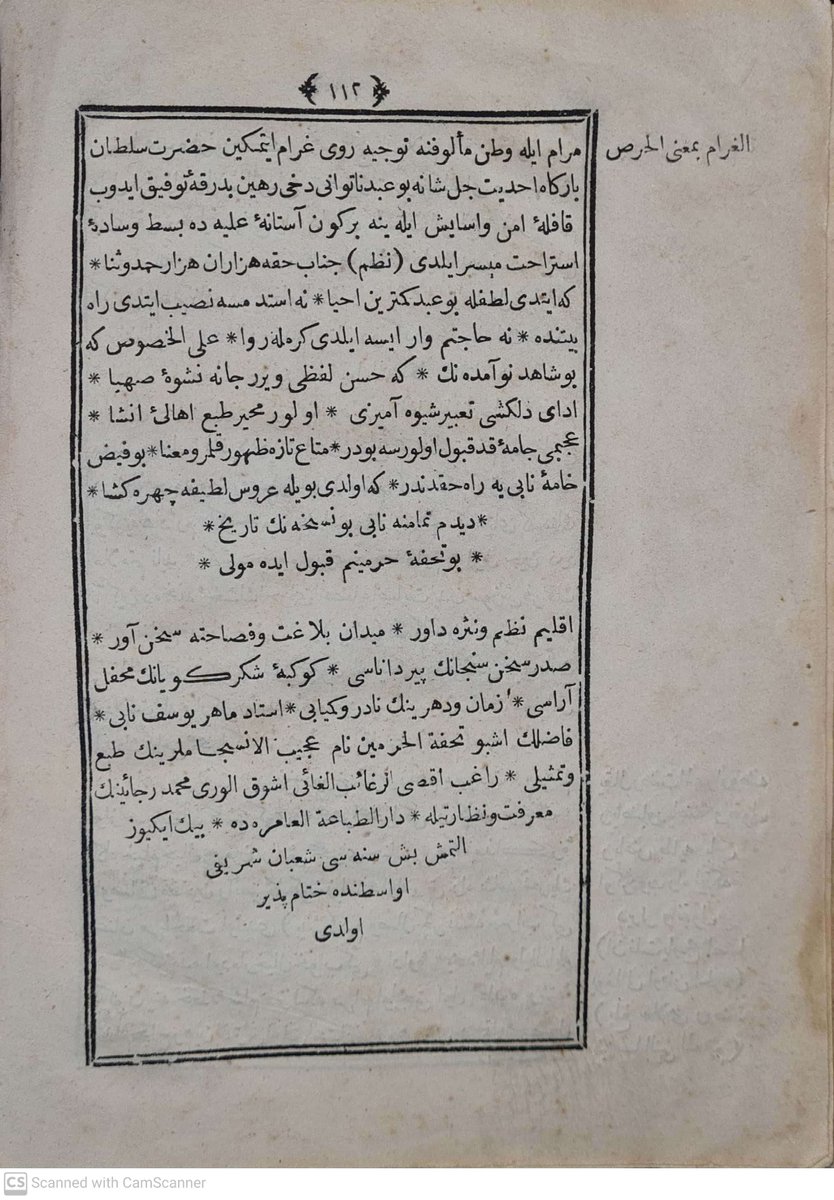 ﴿ ١١٢ ﴾
الغرام بمعنى الحرص
مرام ايله وطن مألوفنه توجيه روى غرام ايتمكين حضرت سلطان
باركاه احديت جل شانه بو عبد ناتوانى دخى رهين بدرقهٔ توفيق ايدوب
قافلهٔ امن واسايش ايله ينه بركون آستانهٔ عليه ده بسط وسادهٔ
استراحت ميسر ايلدى (نظم) جناب حقه هزاران هزار حمد وثنا *
كه ايتدى لطفله بو عبد كمترين احيا * نه استدمسه نصيب ايتدى راه
بيتنده * نه حاجتم وار ايسه ايلدى كرمله روا * على الخصوص كه
بو شاهد نو آمده نك * كه حسن لفظى ويرر جانه نشوهٔ صهبا *
اداى دلكشى تعبير شيوه آميزى * اولور محير طبع اهالئ انشا *
عجيمى جامهٔ قد قبول اولورسه بودر * متاع تازه ظهور قلمرو معنا * بو فيض
خامهٔ نابى يه راه حقدندر * كه اولدى بويله عروس لطيفه چهره كشا *
* ديدم تمامنه نابى بو نسخه نك تاريخ *
* بو تحفهٔ حرمينم قبول ايده مولى *
اقليم نظم ونثره داور * ميدان بلاغت وفصاحته سخن آور *
صدر سخن سنجانك پير داناسى * كوكبهٔ شكر كويانك محفل
آراسى * زمان ودهرينك نادر وكميابى * استاد ماهر يوسف نابى *
فاضلك اشبو تحفة الحرمين نام عجيب الانسجاملرينك طبع
وتمثيلى * راغب اقصى الرغائب الغائى اشوق الورى محمد رجائينك
معرفت ونظارتيله * دار الطباعة العامره ده * بيك ايكيوز
التمش بش سنه سى شعبان شريفى
اواسطنده ختام پذير
اولدى
CS Scanned with CamScanner